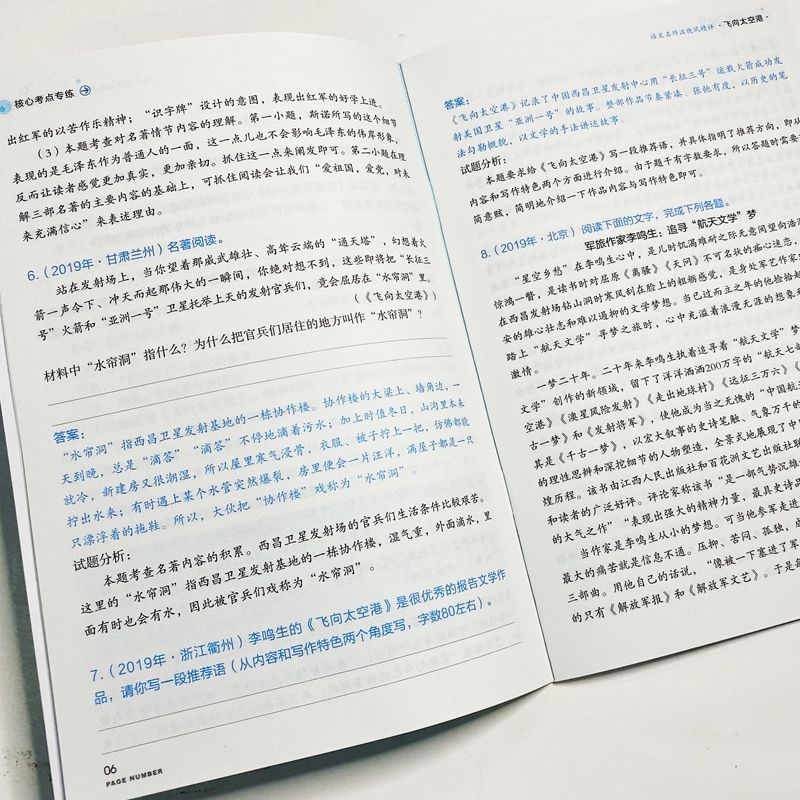 核心考点专练
出红军的以苦作乐精神；“识字牌”设计的意图，表现出红军的好学上进。
（3）本题考查对名著情节内容的理解。第一小题，斯诺所写的这个细节
表现的是毛泽东作为普通人的一面，这一点儿也不会影响毛泽东的伟岸形象，
反而让读者感觉更加真实，更加亲切。抓住这一点来阐发即可。第二小题在理
解三部名著的主要内容的基础上，可抓住阅读会让我们“爱祖国，爱党，对未
来充满信心”来表述理由。
6.（2019年·甘肃兰州）名著阅读。
站在发射场上，当你望着那威武雄壮、高耸云端的“通天塔”，幻想着火
箭一声令下、冲天而起那伟大的一瞬间，你绝对想不到，这些即将把“长征三
号”火箭和“亚洲一号”卫星托举上天的发射官兵们，竟会屈居在“水帘洞”里。
（《飞向太空港》）
材料中“水帘洞”指什么？为什么把官兵们居住的地方叫作“水帘洞”？
答案：
“水帘洞”指西昌卫星发射基地的一栋协作楼。协作楼的大梁上、墙角边，一
天到晚，总是“滴答”“滴答”不停地滴着污水；加上时值冬日，山沟里本来
就冷，新建房又很潮湿，所以屋里寒气浸骨，衣服、被子拧上一把，仿佛都能
拧出水来；有时遇上某个水管突然爆裂，房里便会一片汪洋，满屋子都是一只
只漂浮着的拖鞋。所以，大伙把“协作楼”戏称为“水帘洞”。
试题分析：
本题考查名著内容的积累。西昌卫星发射场的官兵们生活条件比较艰苦。
这里的“水帘洞”指西昌卫星发射基地的一栋协作楼，湿气重，外面滴水，里
面有时也会有水，因此被官兵们戏称为“水帘洞”。
7.（2019年·浙江衢州）李鸣生的《飞向太空港》是很优秀的报告文学作
品，请你写一段推荐语（从内容和写作特色两个角度写，字数80左右）。
06
PAGE NUMBER
语文名师汪晓凤精评·飞向太空港·
答案：
《飞向太空港》记录了中国西昌卫星发射中心用“长征三号”运载火箭成功发
射美国卫星“亚洲一号”的故事。整部作品节奏紧凑、张弛有度，以历史的笔
法勾勒概貌，以文学的手法讲述故事。
试题分析：
本题要求给《飞向太空港》写一段推荐语，并具体指明了推荐方向，即从
内容和写作特色两个方面进行介绍。由于题干有字数要求，所以答题时需要
简意赅，简明地介绍一下作品内容与写作特色即可。
8.（2019年·北京）阅读下面的文字，完成下列各题。
军旅作家李鸣生：追寻“航天文学”梦
“星空乡愁”在李鸣生心中，是儿时饥渴难耐之际无意间望向浩
惊鸿一瞥，是读书时对屈原《离骚》《天问》不可名状的痴心迷恋，
在西昌发射场钻山洞时寒风刮在脸上的粗粝感觉，是身处军艺作家
安的雄心壮志和难以遏抑的文学梦想。当已过而立之年的他捡拾
踏上“航天文学”寻梦之旅时，心中充溢着浪漫无涯的想象和
激情。
一梦二十年。二十年来李鸣生执着追寻着“航天文学”梦
文学”创作的新领域，留下了洋洋洒洒200万字的“航天七
空港》《澳星风险发射》《走出地球村》《远征三万六》《
古一梦》和《发射将军》，使他成为当之无愧的“中国航
其是《千古一梦》，以宏大叙事的史诗笔触、气象万千的
的理性思辩和深挖细刻的人物塑造，全景式地展现了中
煌历程。该书由江西人民出版社和百花洲文艺出版社联
和读者的广泛好评。评论家称该书“是一部气势沉雄
的大气之作”“表现出强大的精神力量，最具史诗品
当作家是李鸣生从小的梦想。可当他参军走进
最大的痛苦就是信息不通。压抑、苦闷、孤独，成
三部曲。用他自己的话说，“像被一下塞进了军
的只有《解放军报》和《解放军文艺》。于是